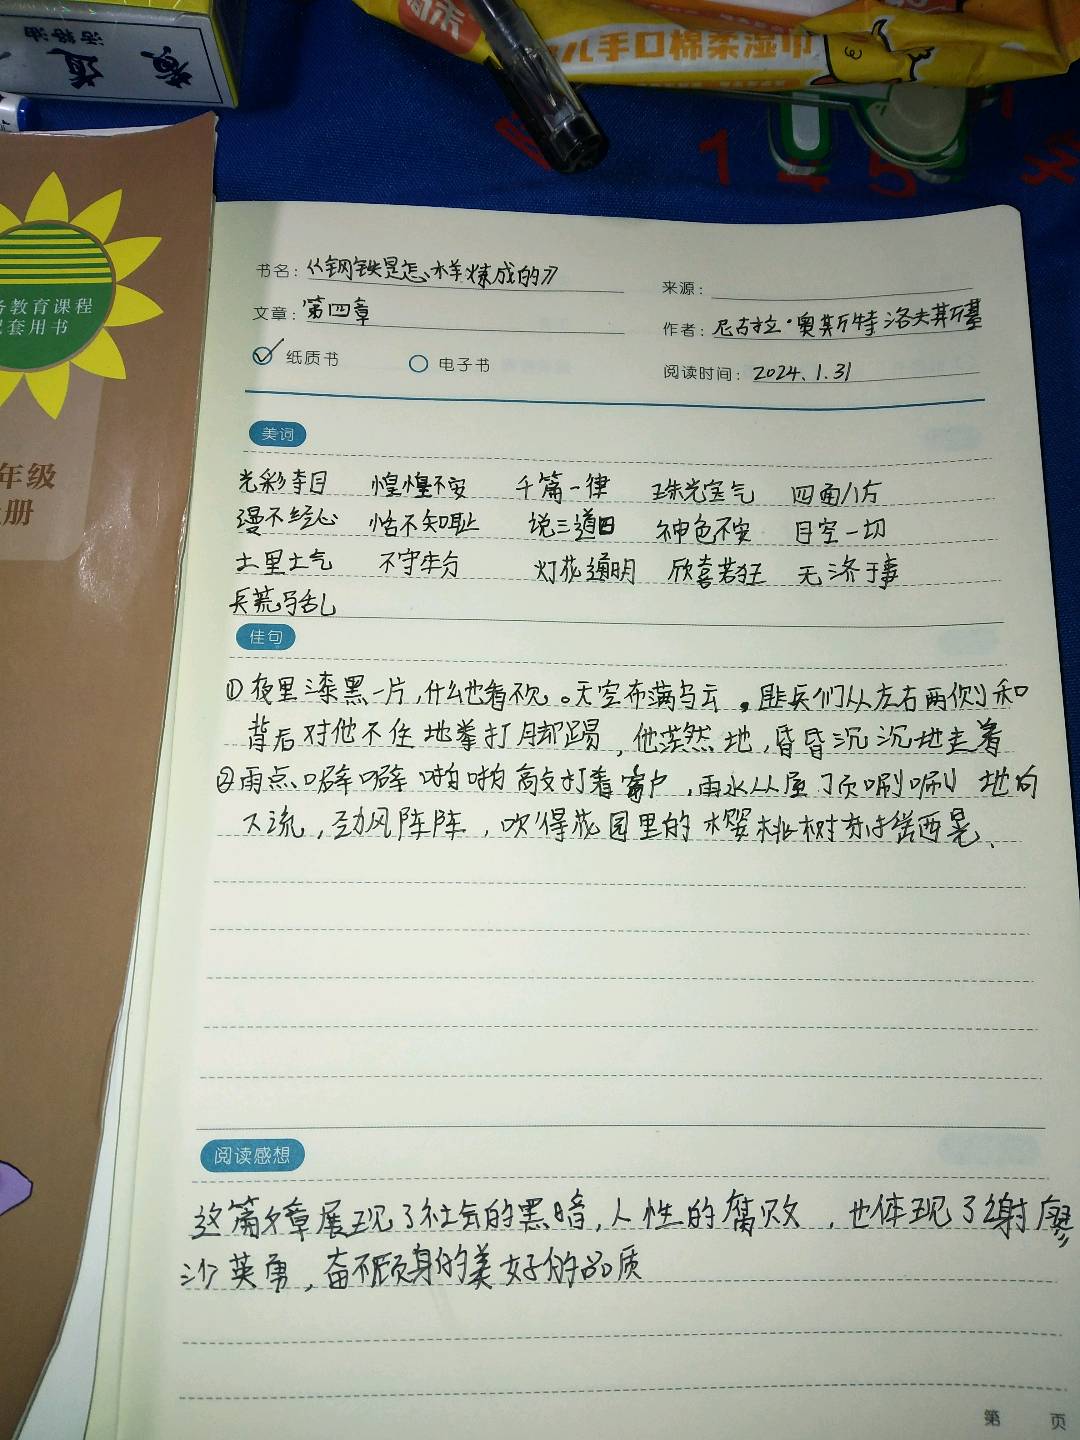 洛油
周末
儿手口棉柔湿巾
1 4 5
务教育课程
配套用书
年级
册
书名：《钢铁是怎样炼成的》
来源：
文章：第四章
作者：尼古拉·奥斯特洛夫斯基
纸质书 电子书
阅读时间：2024.1.31
美词
光彩夺目 惶惶不安 千篇一律 珠光宝气 四面八方
漫不经心 恬不知耻 说三道四 神色不安 目空一切
土里土气 不守本分 灯花通明 欣喜若狂 无济于事
兵荒马乱
佳句
①夜里漆黑一片，什么也看不见。天空布满乌云，匪兵们从左右两侧和
背后对他不住地拳打脚踢，他茫然地，昏昏沉沉地走着
②雨点噼噼啪啪敲打着窗户，雨水从屋顶唰唰地向
下流，劲风阵阵，吹得花园里的樱桃树东摇西晃、
阅读感想
这篇文章展现了社会的黑暗，人性的腐败，也体现了谢廖
沙英勇，奋不顾身的美好的品质
第 页